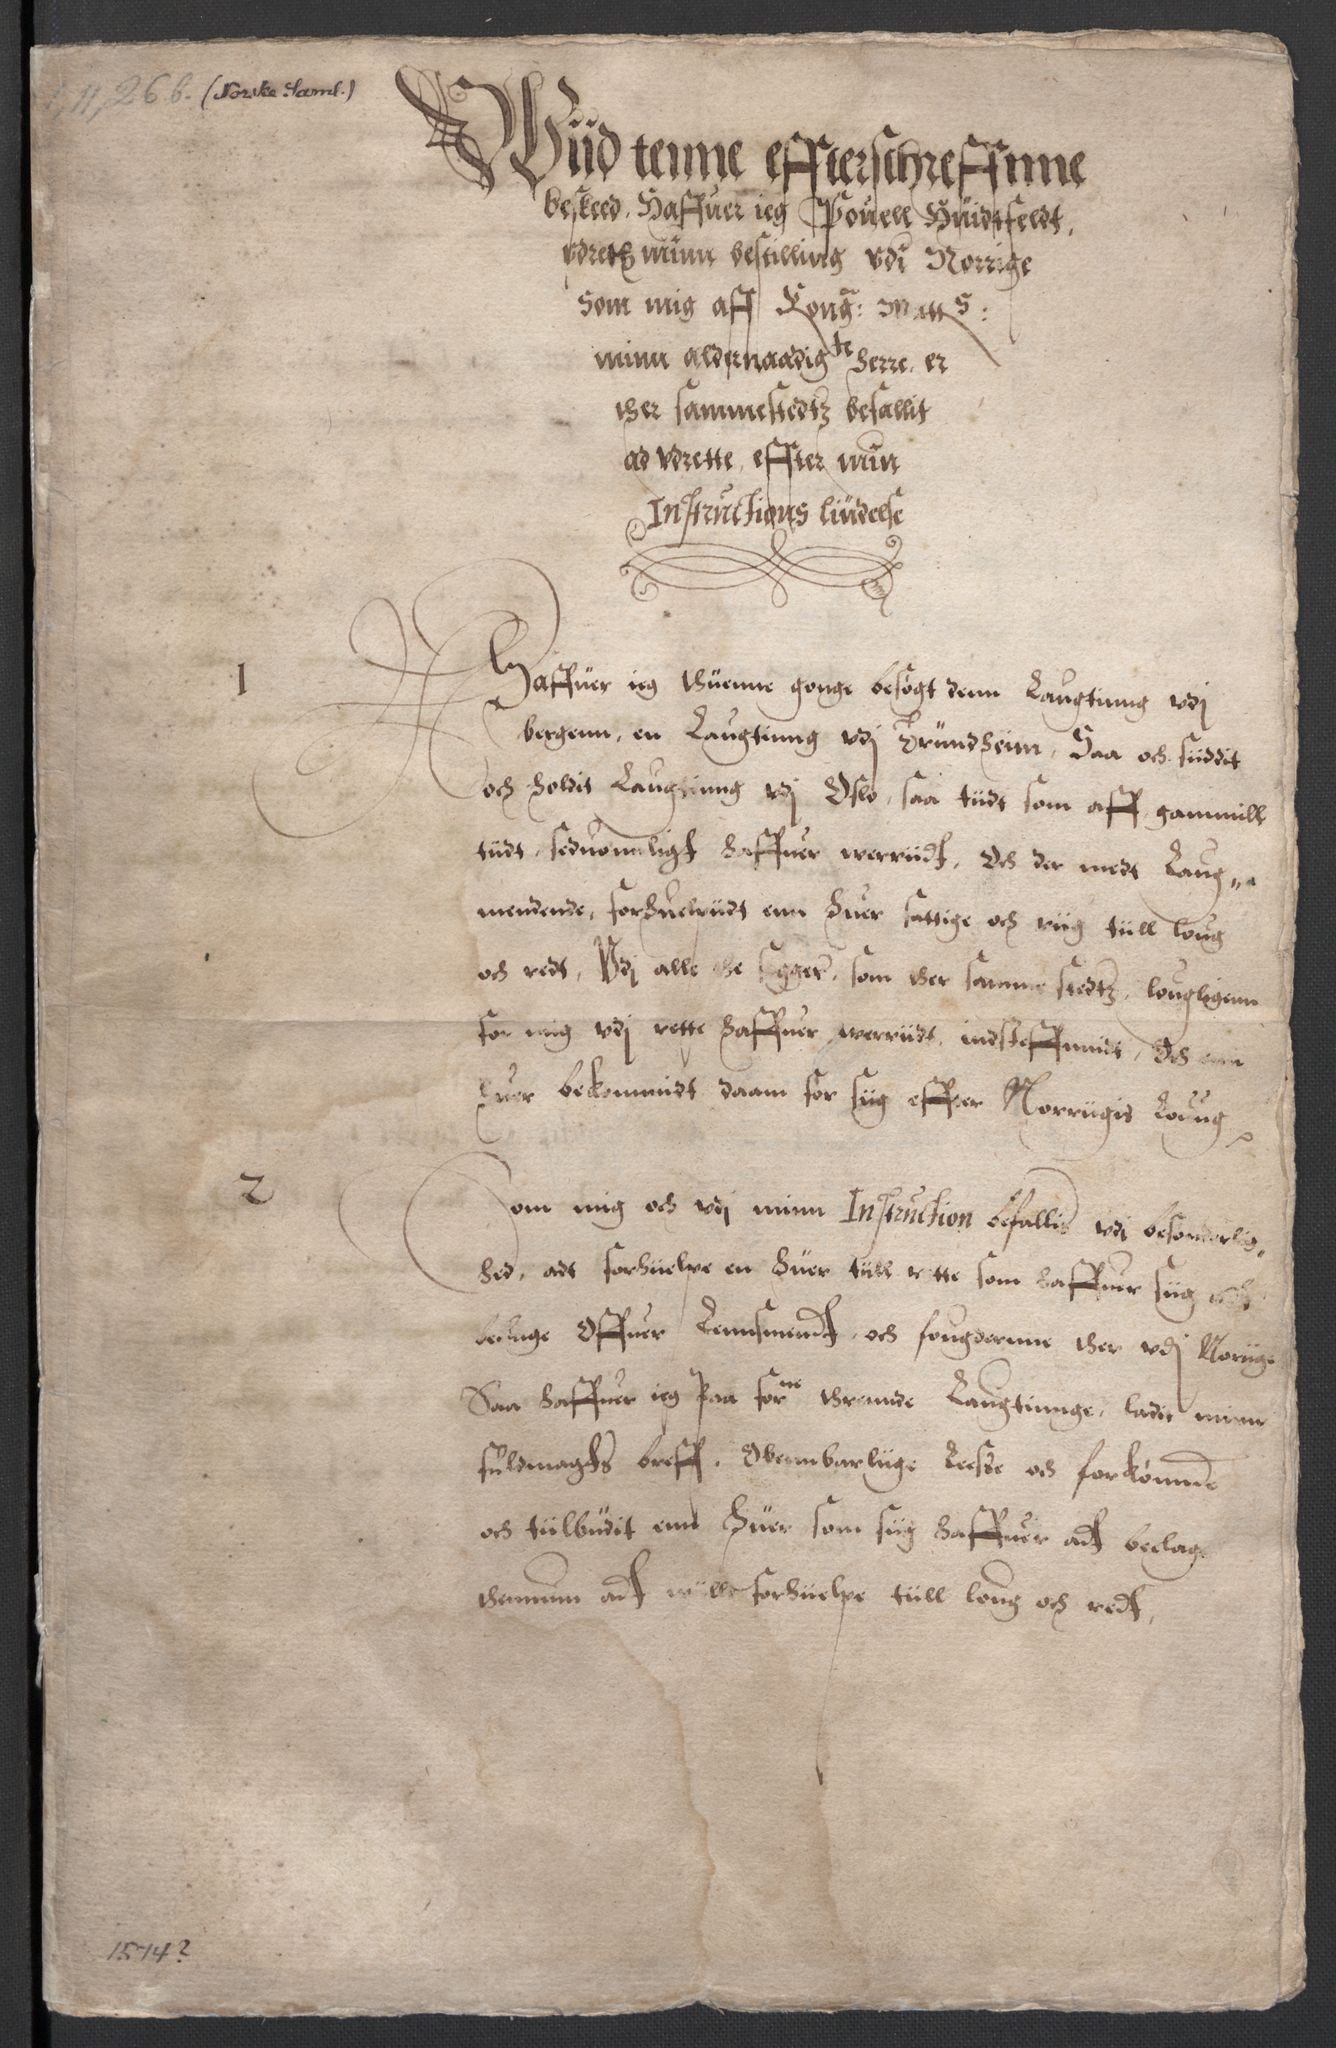 1,11,26 b. (Norske Saml.)
Wiid tenne effterschreffnne
beskeed, Haffuer ieg Pouell Huidtfeldt,
vdrett minn bestilling vdi Norrige
Som mig aff Kong: Matts:
minn aldernaadigste herre, er
ther sammestedtz befallit
ad vdrette, effter min
Instructions liudelse
1
Haffuer ieg thuenne gonge besøgt denn Laugtinng vdj
bergenn, en Laugtinng vdj Trundheim, Saa och siiddit
och holdit Laugtinng vdj Oslo, saa tiidt som aff gammill
tiidt, seduonnligt haffuer werriidt, Och der medt Laug-
mendende, forhuelpiidt enn huer fattige och riig tiill loug
och redt, Vdj alle the sagger, som ther samme stedtz, lougligenn
for mig vdj rette haffuer werriidt, indsteffnnidt, Och enn
huer bekommidt daam for siig effter Norriigis Loug
2
Som mig och vdj minn Instruction befallis vdj besønderlig-
hed, adt forhielpe en huer tiill rette som haffuer siig adt
beclage Offuer Lennsmendt, och fougdernne ther vdj Noriige
Saa haffuer ieg paa forne thrende Laugtinnge, ladit minn
fuldmagts breff, Obennbarliige Leesse och forkønnde
och tiilbudit enn huer som siig haffuer adt beclage
thennum adt wille forhielpe tiill loug och redt,
1574?